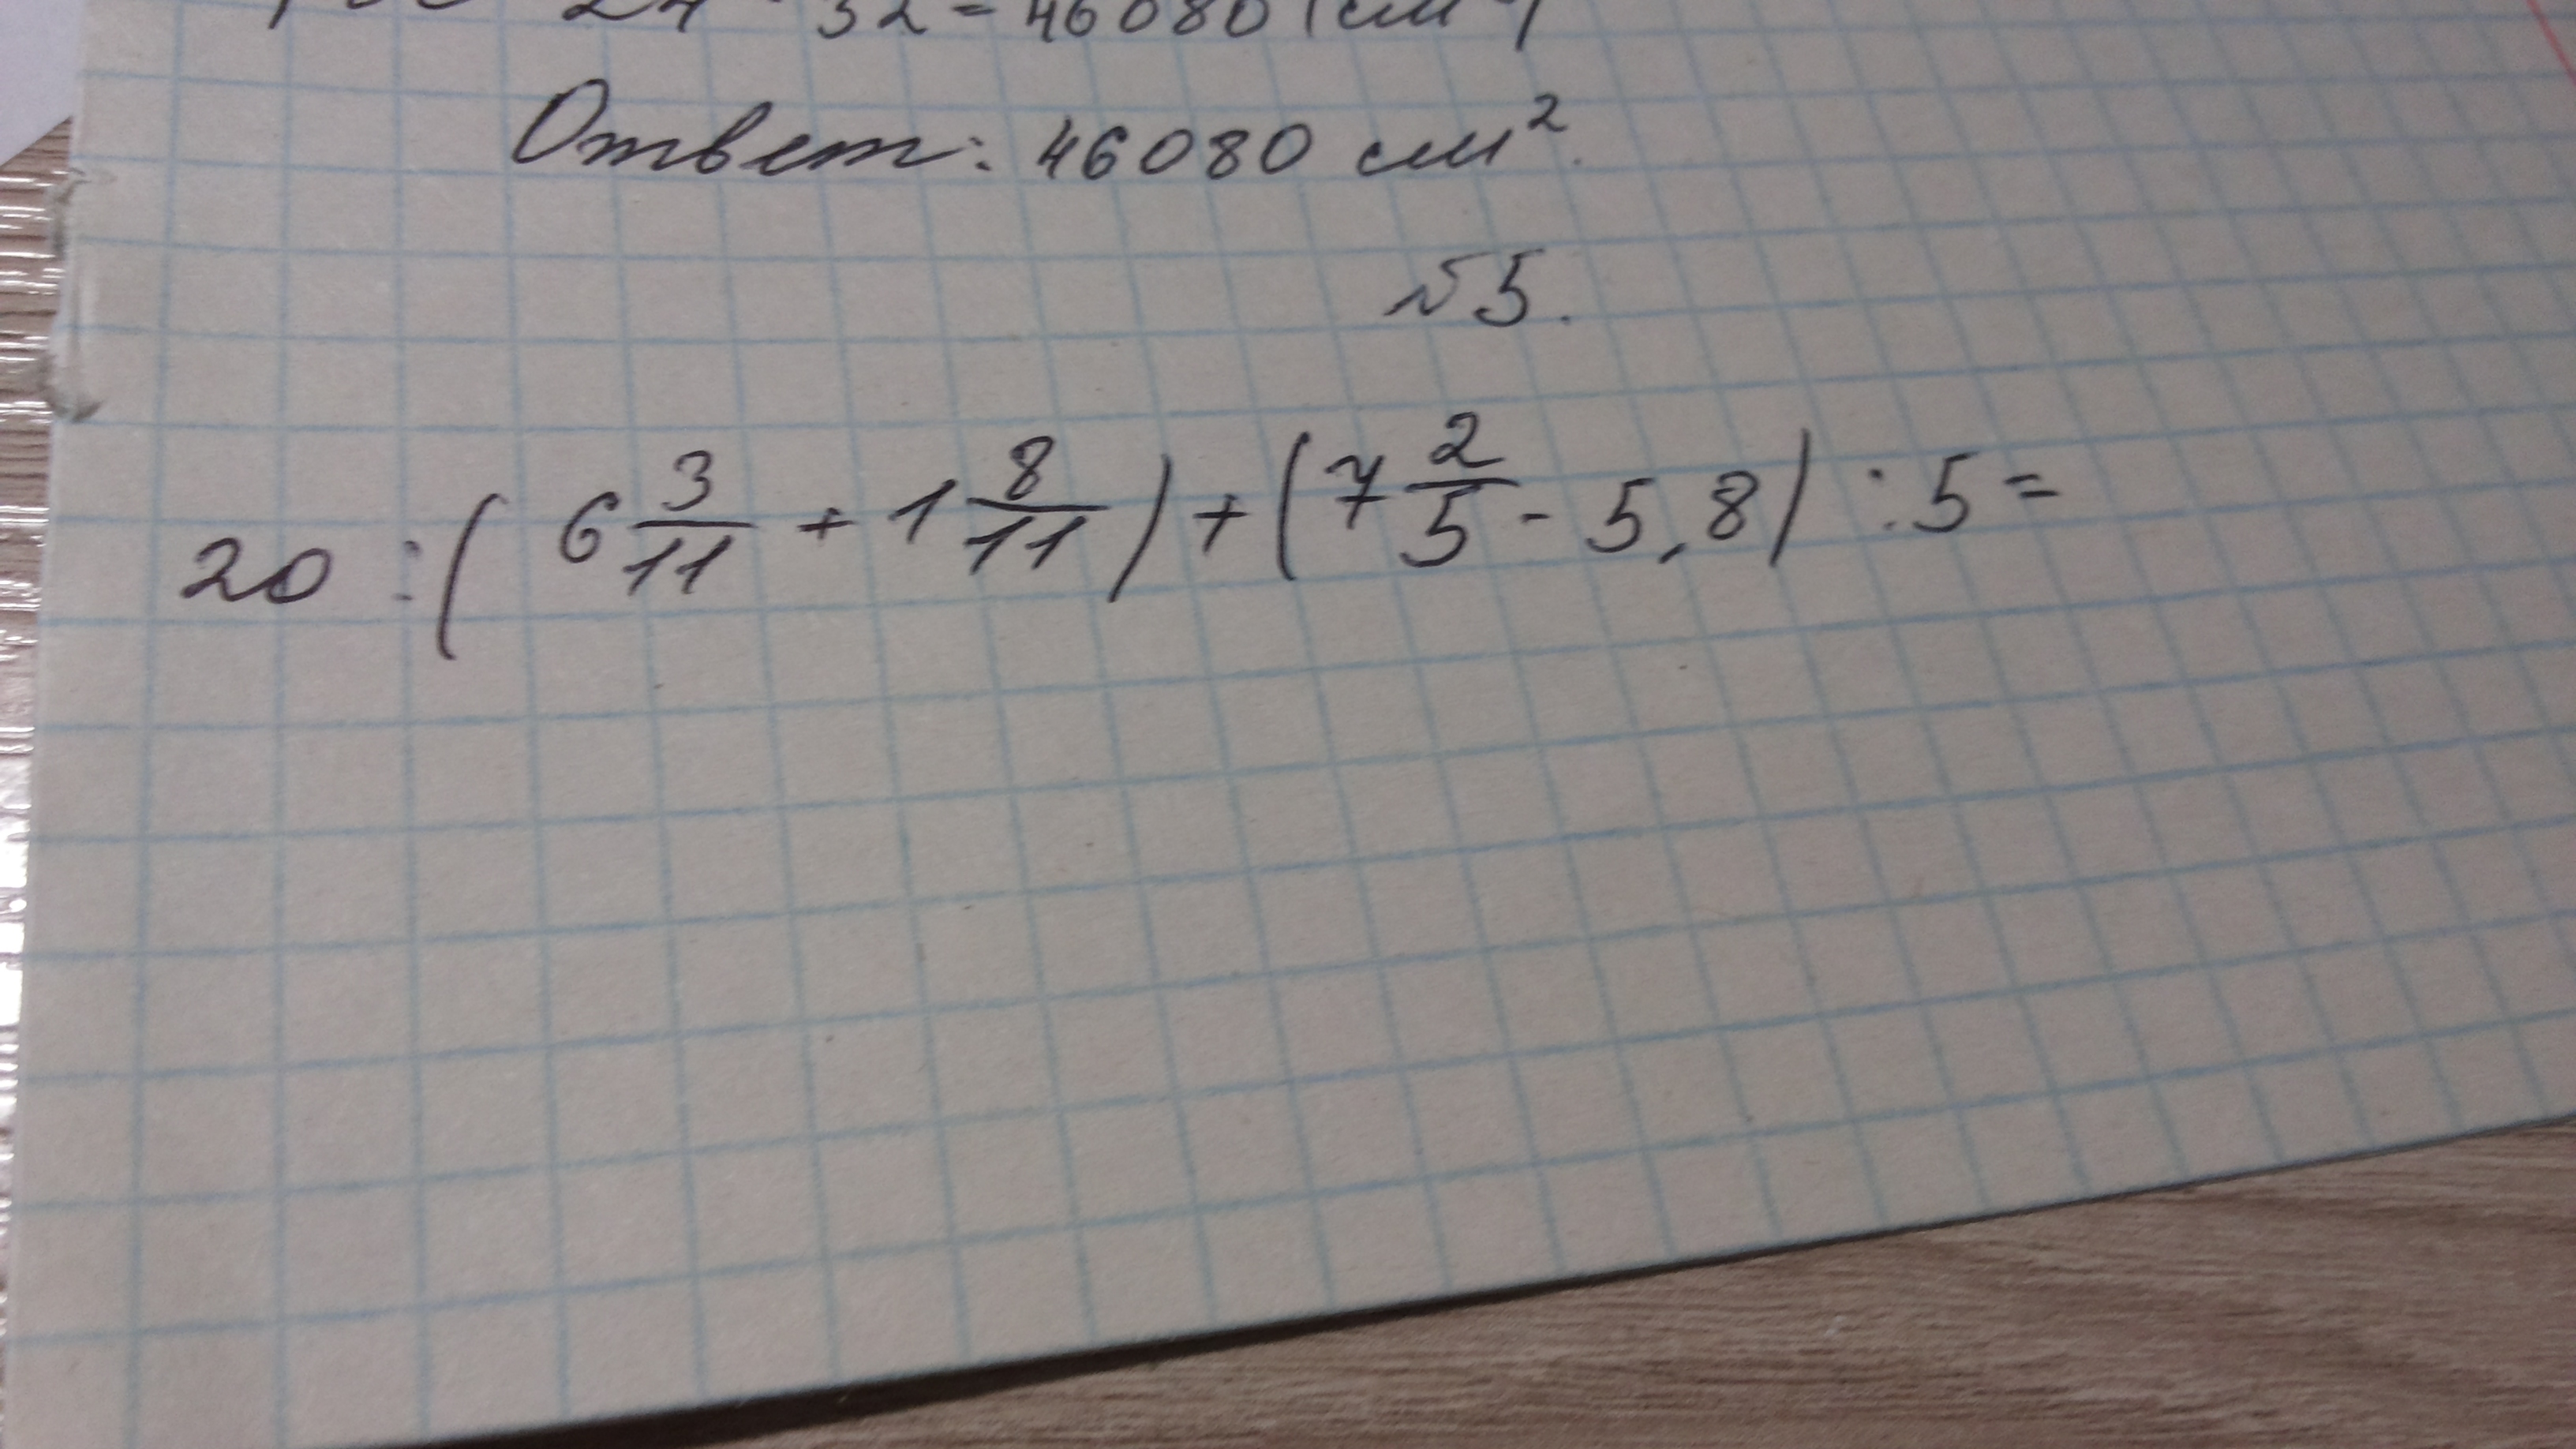 24 · 32 = 46080 (см²)
Ответ: 46080 см².
№5.
20 : ( 6 3/11 + 1 8/11 ) + ( 7 2/5 - 5,8 ) : 5 =